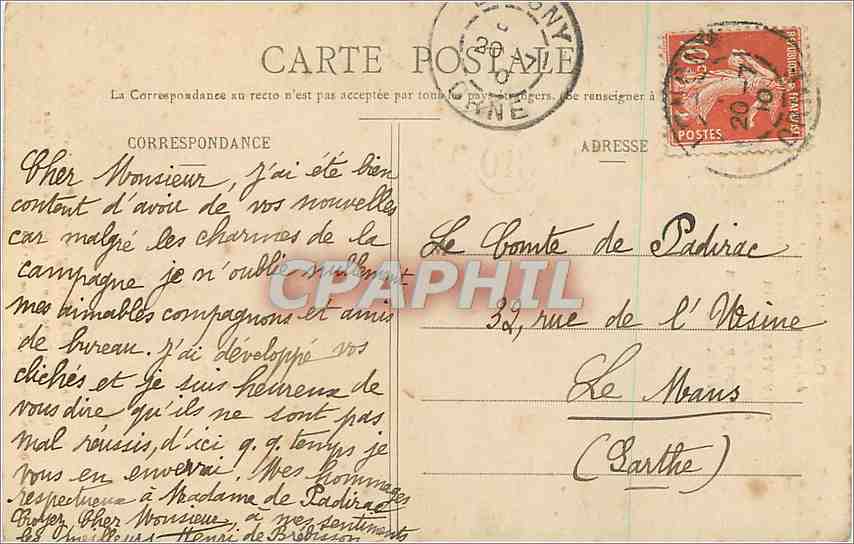 CARTE POSTALE
La Correspondance au recto n'est pas acceptée par tous les pays étrangers. (Se renseigner à
CORRESPONDANCE
Cher Monsieur, j'ai été bien
content d'avoir de vos nouvelles
car malgré les charmes de la
campagne je n'oublie nullement
mes aimables compagnons et amis
de bureau. J'ai développé vos
clichés et je suis heureux de
vous dire qu'ils ne sont pas
mal réussis, d'ici q.q. temps je
vous en enverrai. Mes hommages
respectueux à Madame de Padirac
Croyez, Cher Monsieur, à mes sentiments
les meilleurs Henri de Brébisson
ADRESSE
Le Comte de Padirac
32, rue de l'Usine
Le Mans
(Sarthe)
20 -7
10
ORNE
REPUBLIQUE FRANÇAISE
10
POSTES
20 -7
10
CPAPHIL